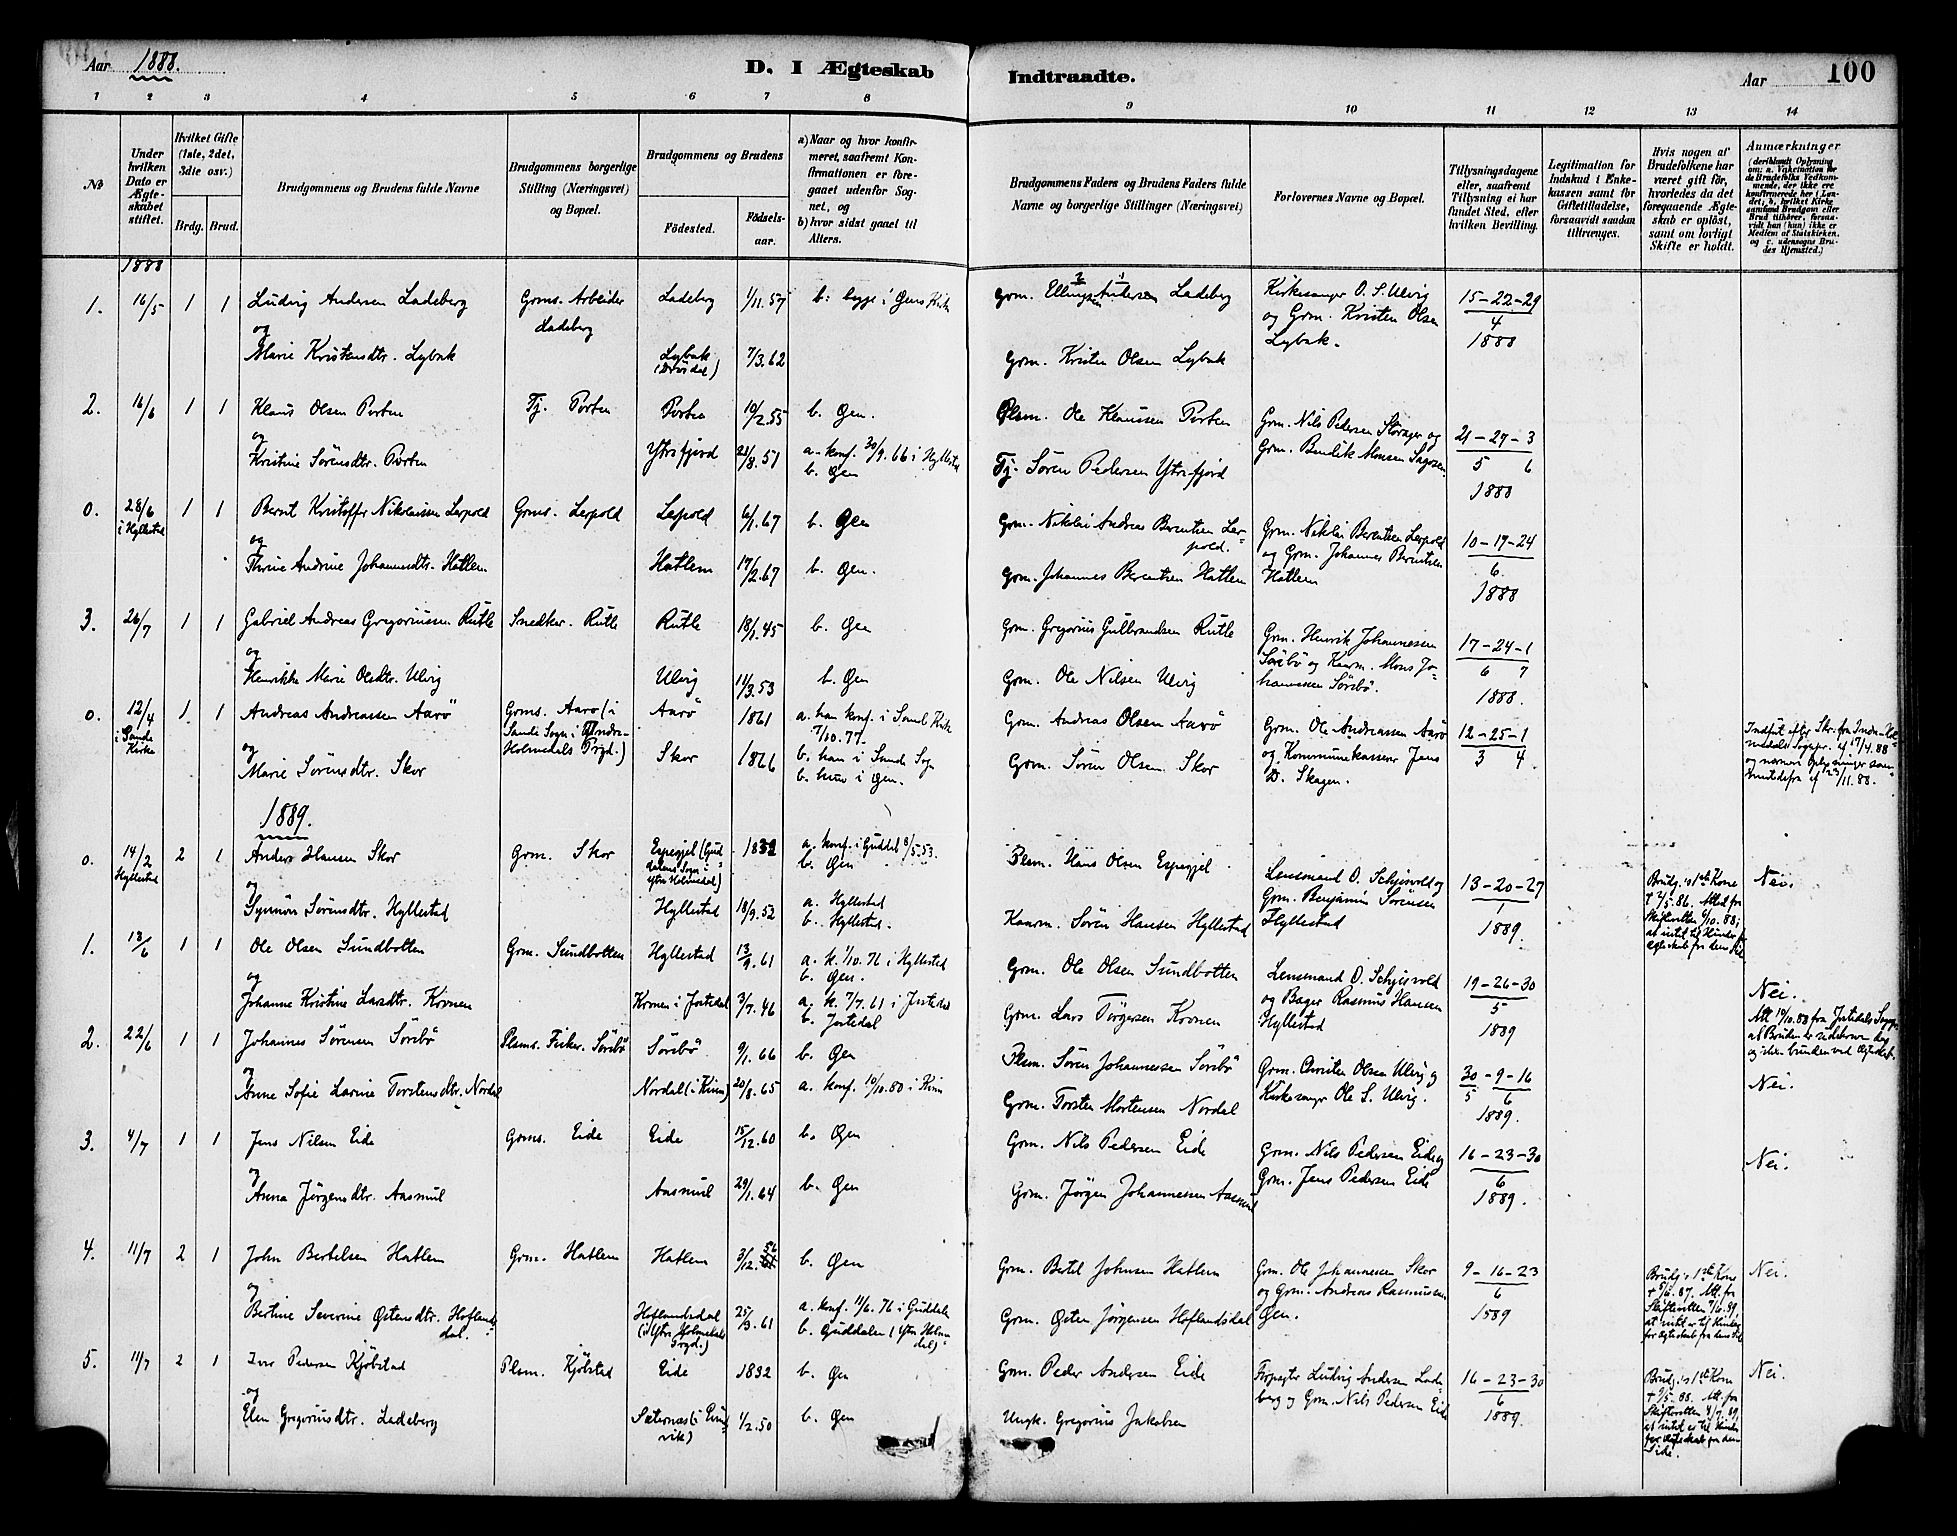 Aar 1888.
D. I Ægteskab Indtraadte.
Aar 100
1 2 3 4 5 6 7 8 9 10 11 12 13 14
No
Under hvilken Dato er Ægteskabet stiftet.
Hvilket Gifte (1ste, 2det, 3die osv.)
Brdg. Brud.
Brudgommens og Brudens fulde Navne
Brudgommens borgerlige Stilling (Næringsvei) og Bopæl.
Brudgommens og Brudens
Fødested. Fødselsaar.
a) Naar og hvor konfirmeret, saafremt Konfirmationen er foregaaet udenfor Sognet, og
b) hvor sidst gaaet til Alters.
Brudgommens Faders og Brudens Faders fulde Navne og borgerlige Stillinger (Næringsvei)
Forlovernes Navne og Bopæl.
Tillysningsdagene eller, saafremt Tillysning ei har fundet Sted, efter hvilken Bevilling.
Legitimation for Indskud i Enkekassen samt for Giftetilladelse, forsaavidt saadan tiltrænges.
Hvis nogen af Brudefolkene har været gift før, hvorledes da det foregaaende Ægteskab er opløst, samt om lovligt Skifte er holdt.
Anmærkninger
(deriblandt Oplysning om: a. Vakcination for de Brudefolks Vedkommende, der ikke ere konfirmerede her i Landet; b. hvilket Kirkesamfund Brudgom eller Brud tilhører, forsaavidt han (hun) ikke er Medlem af Statskirken, og c. udensogns Brudes Hjemsted.)
1888
1. 16/5 1 1 Ludvig Andersen Ladeberg Grms. Arbeider Ladeberg Ladeberg 1/11.57 b: begge i Øens Kirke Grm. Ellingsen Andersen Ladeberg Kirkesanger O. S. Ulvig og Grm. Kristen Olsen Lybæk. 15-22-29 4 1888
og
Marie Kristensdtr. Lybæk Lybæk 7/3.62 Grm. Kristen Olsen Lybæk
2. 16/6 1 1 Klaus Olsen Porten Tj. Porten Porten 10/2.55 b. Øen. Plsm. Ole Klaussen Porten Grm. Nils Pedersen Storager og Grm. Bendik Monsen Sagosen 21-27-3 5 6 1888
og
Kristine Sørensdtr. Porten Ytrefjord 23/8.51 a. konf. 30/9.66 i Hyllestad b. Øen Tj. Søren Pedersen Ytrefjord
0. 28/6 i Hyllestad 1 1 Bernt Kristoffer Nikolaisen Lerpold Grms. Lerpold Lerpold 6/1.67 b. Øen Grm. Nikolai Andreas Berentsen Lerpold. Grm. Nikolai Berentsen Lerpold og Grm. Johannes Berentsen Hatlem 10-17-24 6. 1888
og
Thrine Andrine Johannesdtr. Hatlem Hatlem 17/2.67 b. Øen. Grm. Johannes Berentsen Hatlem
3. 26/7 1 1 Gabriel Andreas Gregoriussen Rutle Snedker. Rutle Rutle 18/1.45 b. Øen Grm. Gregorius Gulbrandsen Rutle Grm. Henrik Johannessen Sørebø og Kaarm. Mons Johannessen Sørebø. 17-24-1 6 7 1888.
og
Henrikke Marie Olsdtr. Ulvig Ulvig 11/3.53 b. Øen Grm. Ole Nilsen Ulvig
0. 12/4 i Sande Kirke 1. 1 Andreas Andreassen Aarø Grms. Aarø (i Sande Sogn i Indre-Holmedals Prgd.) Aarø 1861 a. han konf. i Sande Kirke 7/10.77. Grm. Andreas Olsen Aarø Grm. Ole Andreassen Aarø og Kommunekasserer Jens D. Skagen. 12-25-1 3 4.
og
Marie Sørensdtr. Skor Skor 1866 b. han i Sande Sogn b. hun i Øen. Grm. Søren Olsen Skor
Indført efter Skr. fra Indre Holmedals Sognepr. af 17/4.88 og nærmere Oplysninger af 23/11.88.
1889.
0. 14/2 Hyllestad 2 1 Anders Hansen Skor Grm. Skor Espegjel (Guddalens Sogn i Ytre Holmedal) a. konf. i Guddal 8/5.53. b. Øen Plsm. Hans Olsen Espegjel. Lensmand O. Schjervold og Grm. Benjamin Sørensen Hyllestad 13-20-27 1 1889.
og
Synnøve Sørensdtr. Hyllestad Hyllestad 18/9.52 a. Hyllestad b. Hyllestad. Kaarm. Søren Hansen Hyllestad
Brudg.s 1ste Kone † 7/5.86. Attest fra Skifteretten 6/10.88; at intet til Hinder for Ægteskab fra dens Side. Nei.
1. 13/6 1 1 Ole Olsen Sundbotten Grm. Sundbotten Hyllestad 13/9.61 a. k. 1/10.76 i Hyllestad b. Øen. Grm. Ole Olsen Sundbotten Lensmand O. Schjervold og Bager Rasmus Hansen Hyllestad 19-26-30 5 1889
og
Johanne Kristine Larsdtr. Kronen Kronen i Jostedal 3/7.46 a. k. 7/7.61 i Jostedal b. Jostedal Grm. Lars Tørgersen Kronen
Nei.
Att 14/10.88 fra Jostedals Sogn at Bruden er udebaaren og ikke bunden ved Ægteskab.
2. 22/6 1 1 Johannes Sørensen Sørebø Plsms. Fisker. Sørebø Sørebø 9/1.66 b. Øen Plsm. Søren Johannessen Sørebø Grm. Christen Olsen Ulvig og Kirkesanger Ole S. Ulvig. 30-9-16 5 6 1889. Nei.
og
Anne Sofie Larine Torstensdtr. Nordal Nordal (i Kinn) 20/8.65 a. konf. 10/10.80 i Kinn Grm. Torsten Mortensen Nordal
3. 4/7 1 1 Jens Nilsen Eide Grms. Eide Eide 15/12.60 b. Øen Grm. Nils Pedersen Eide Grm. Nils Pedersen Eide og Grm. Jens Pedersen Eide 16-23-30 6 1889. Nei.
og
Anna Jørgensdtr. Aasmul Aasmul 29/1.64 b. Øen Grm. Jørgen Johannessen Aasmul
4. 11/7 2 1 John Bertelsen Hatlem Grm. Hatlem Hatlem 3/12.56 b. Øen Grm. Bertel Johnsen Hatlem Grm. Ole Johannessen Skor og Grm. Andreas Rasmussen Øen. 9-16-23 6 1889
og
Bertine Severine Østensdtr. Hoflandsdal. Hoflandsdal (i Ytre Holmedals Prgd.) 25/3.61 a. konf. 11/6.76 i Guddalen b. Guddalen (Ytre Holmedal) Grm. Østen Jørgensen Hoflandsdal
Brudg.s 1ste Kone † 5/10.87. Att. fra Skifteretten 7/6.89, at intet er til Hinder for Ægteskab fra dens Side Nei.
5. 11/7 2 1 Iver Pedersen Kjøbstad Plsm. Kjøbstad Eide 1832 b. Øen Grm. Peder Andersen Eide Forpagter Ludvig Andersen Ladeberg og Grm. Nils Pedersen Eide 16-23-30 6 1889.
og
Elen Gregoriusdtr. Ladeberg Sæternæs 1/2.50 b. Øen Ungk. Gregorius Jakobsen
Brudg.s 1ste Kone † 9/5.88. Att. fra Skifteretten 4/7.89, at intet er til Hinder for Ægteskab fra dens Side. Nei.